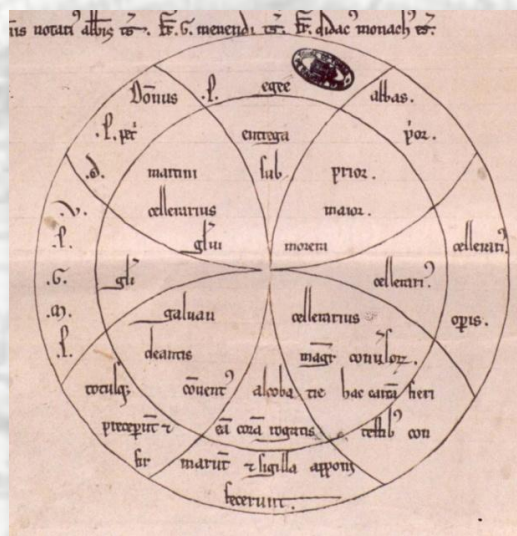 notati⁹ abb̄is t̄s. fr̄. G. menendi t̄s. fr̄. didac⁹ monach⁹ t̄s.
Dōnus .P. egee abbas.
.P. pet̄ p̄or.
entrega
.d. martini sub prior.
cellerarius maior.
.P. gl̄ui moreni cellerari⁹
.G. gl̄i cellerari⁹
.P. galuan cellerarius op̄is.
deantis mag̅r conūsoꝝ.
totusq; cōuent⁹ alcoba tie hac cartā fieri
precepūt ⁊ eā corā rogatis testib⁹ con
fir marūt ⁊ sigilla apponi
fecerunt.